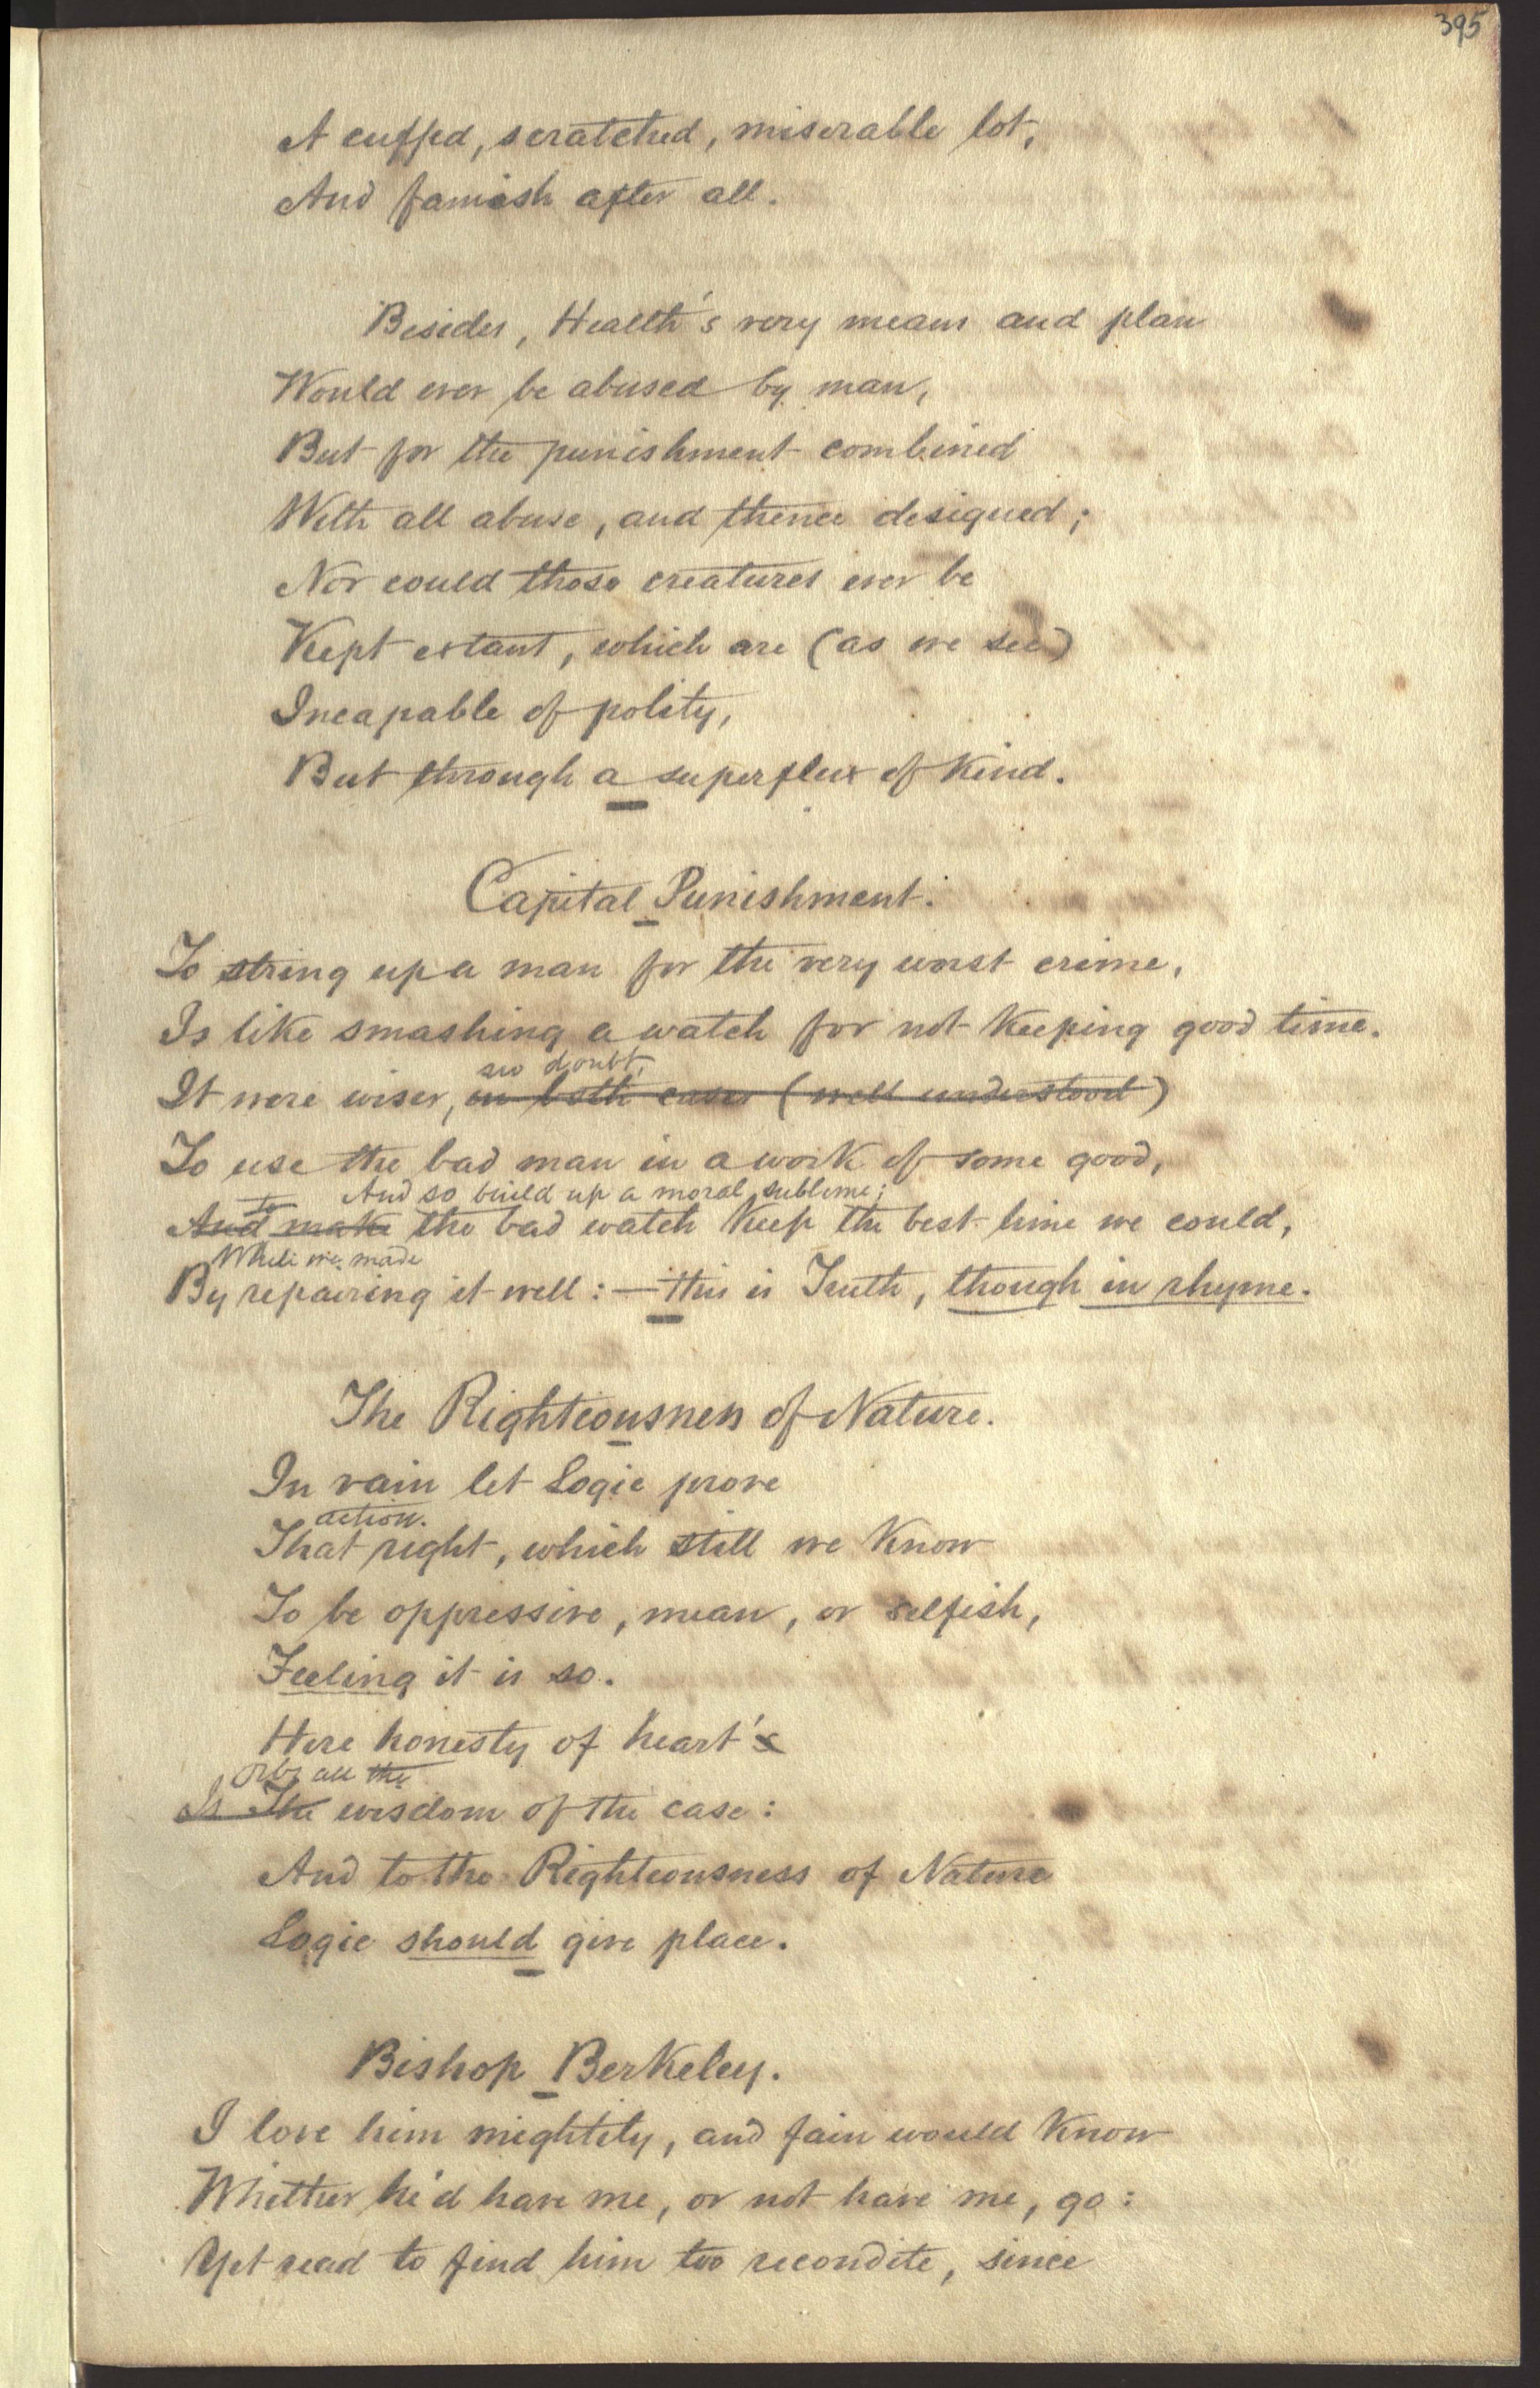 395
A cuffed, scratched, miserable lot,
And famish after all.
Besides, Health's very means and plan
Would ever be abused by man,
But for the punishment combined
With all abuse, and thence designed;
Nor could those creatures ever be
Kept extant, which are (as we see)
Incapable of polity,
But through a superflux of kind.
Capital Punishment.
To string up a man for the very worst crime,
Is like smashing a watch for not keeping good time.
no doubt,
It were wiser, in both cases (well understood)
To use the bad man in a work of some good,
And so build up a moral sublime;
to
And make the bad watch keep the best time we could,
While we made
By repairing it well: — this is Truth, though in rhyme.
The Righteousness of Nature.
In vain let Logic prove
action
That right, which still we know
To be oppressive, mean, or selfish,
Feeling it is so.
Here honesty of heart's
all the
Is The wisdom of the case:
And to the Righteousness of Nature
Logic should give place.
Bishop Berkeley.
I love him mightily, and fain would know
Whither he'd have me, or not have me, go:
Yet read to find him too recondite, since